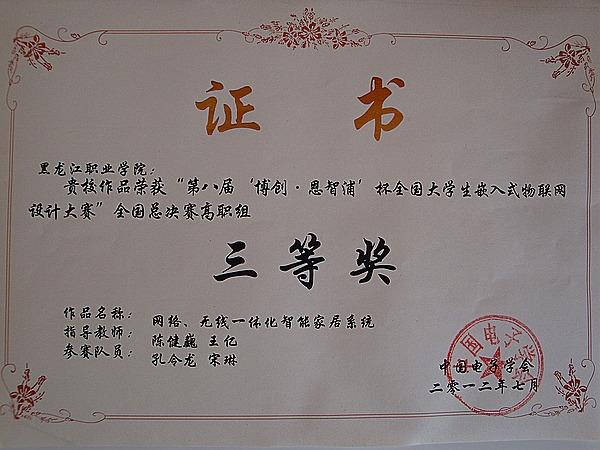 证 书
黑龙江职业学院：
贵校作品荣获“第八届‘博创·恩智浦’杯全国大学生嵌入式物联网
设计大赛”全国总决赛高职组
三等奖
作品名称： 网络、无线一体化智能家居系统
指导教师： 陈健巍 王亿
参赛队员： 孔令龙 宋琳
中国电子学会
二零一二年七月